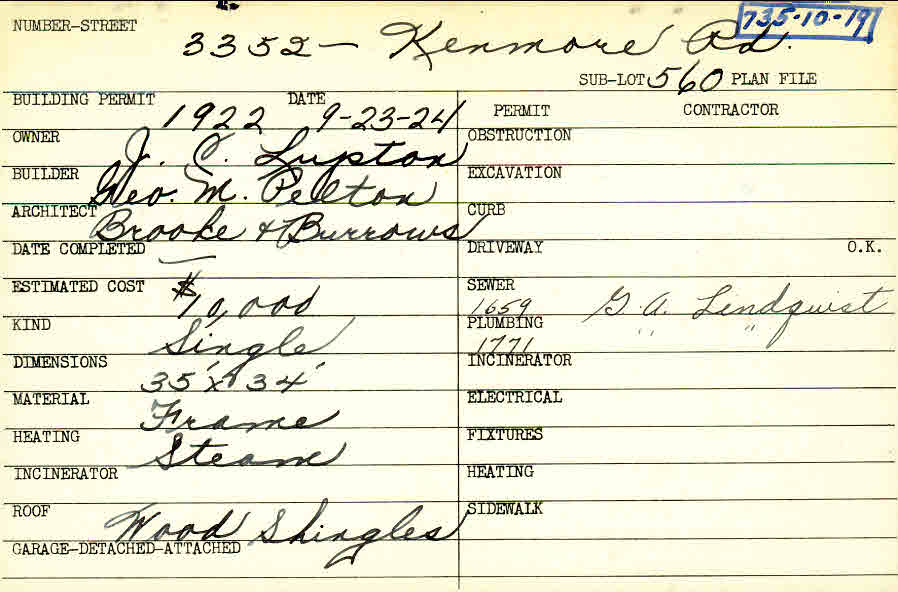 735-10-19
NUMBER-STREET 3352 - Kenmore Rd.
SUB-LOT 560 PLAN FILE
BUILDING PERMIT 1922 DATE 9-23-24
OWNER J. C. Lupton
BUILDER Geo. M. Pelton
ARCHITECT Brooke & Burrows
DATE COMPLETED —
ESTIMATED COST $10,000
KIND Single
DIMENSIONS 35' x 34'
MATERIAL Frame
HEATING Steam
INCINERATOR
ROOF Wood Shingles
GARAGE-DETACHED-ATTACHED
PERMIT CONTRACTOR
OBSTRUCTION
EXCAVATION
CURB
DRIVEWAY O.K.
SEWER
1659 G. A. Lindquist
PLUMBING " "
1771
INCINERATOR
ELECTRICAL
FIXTURES
HEATING
SIDEWALK